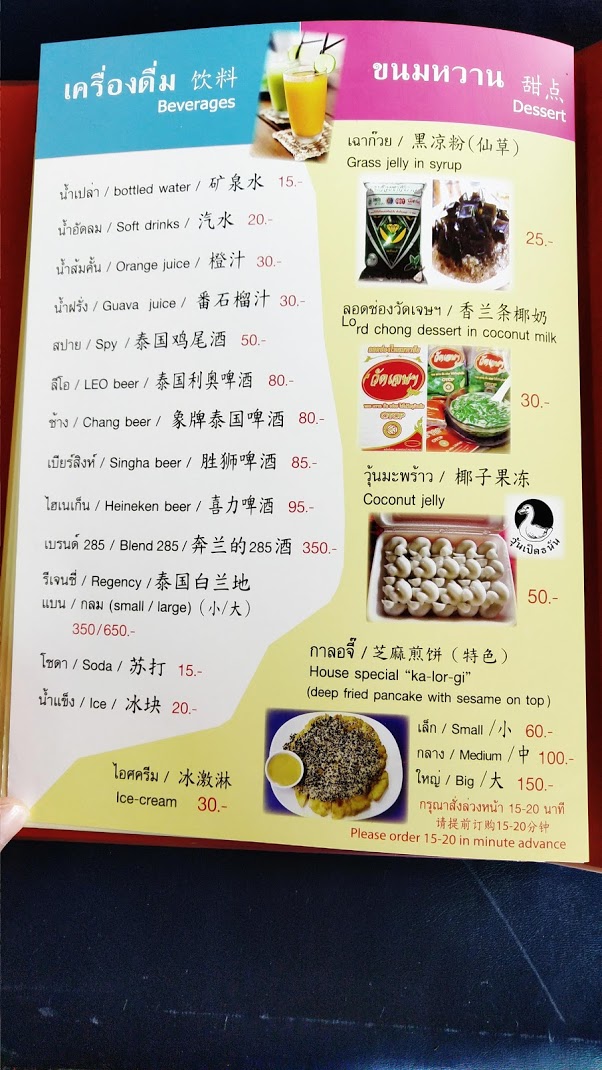 เครื่องดื่ม 饮料
Beverages
น้ำเปล่า / bottled water / 矿泉水 15.-
น้ำอัดลม / Soft drinks / 汽水 20.-
น้ำส้มคั้น / Orange juice / 橙汁 30.-
น้ำฝรั่ง / Guava juice / 番石榴汁 30.-
สปาย / Spy / 泰国鸡尾酒 50.-
ลีโอ / LEO beer / 泰国利奥啤酒 80.-
ช้าง / Chang beer / 象牌泰国啤酒 80.-
เบียร์สิงห์ / Singha beer / 胜狮啤酒 85.-
ไฮเนเก็น / Heineken beer / 喜力啤酒 95.-
เบรนด์ 285 / Blend 285 / 奔兰的285酒 350.-
รีเจนซี่ / Regency / 泰国白兰地
แบน / กลม (small / large) (小/大)
350/650.-
โซดา / Soda / 苏打 15.-
น้ำแข็ง / Ice / 冰块 20.-
ไอศครีม / 冰激淋
Ice-cream 30.-
ขนมหวาน 甜点
Dessert
เฉาก๊วย / 黑凉粉(仙草)
Grass jelly in syrup
25.-
ลอดช่องวัดเจษฯ / 香兰条椰奶
Lord chong dessert in coconut milk
วัดเจษฯ
30.-
วุ้นมะพร้าว / 椰子果冻
Coconut jelly
50.-
กาลอจี๊ / 芝麻煎饼 (特色)
House special "ka-lor-gi"
(deep fried pancake with sesame on top)
เล็ก / Small /小 60.-
กลาง / Medium /中 100.-
ใหญ่ / Big /大 150.-
กรุณาสั่งล่วงหน้า 15-20 นาที
请提前订购15-20分钟
Please order 15-20 in minute advance